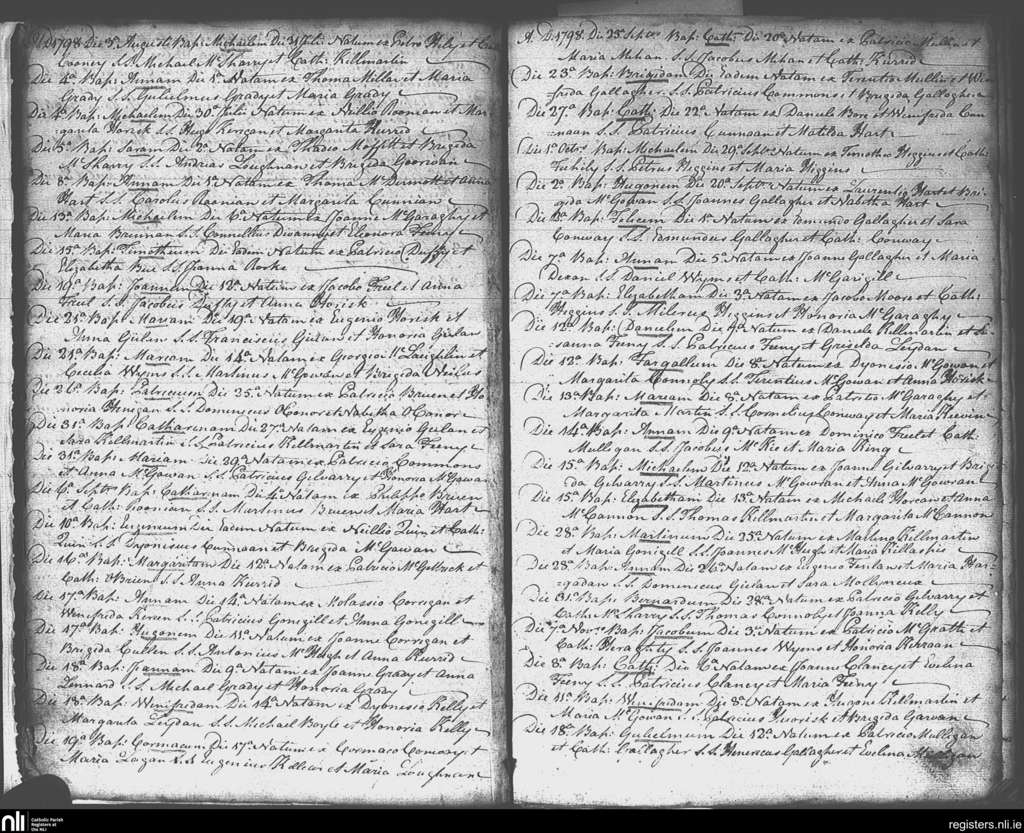 A.D 1798. Die 3a Augusti Bap: Michaelem Die 31 Julii Natum ex Petro Hely et
Cooney S.S. Michael McSharry et Cath: Killmartin
Die 4a Bap: Annam Die 1a Natam ex Thoma Millar et Maria
Grady S.S. Gulielmus Grady et Maria Grady
Die 4a Bap: Michaelem Die 30a Julii Natum ex Noonan et Mar-
garita Horisk S.S. Hugo et Margarita Kurrid
Die 5a Bap: Saram Die 2a Natam ex Moffitt et Brigida
McSharry S.S. Andrias Loughnan et Brigida
Die 8a Bap: Annam Die 1a Natam ex Thoma McDermott et Anna
Hart S.S. Carolus Noonian et Margarita Cunnian
Die 13a Bap: Michaelem Die 6a Natum ex Joanne McGaraghy et
Maria Brennan S.S. Cornelius et Elenora Feeny
Die 15a Bap: Timotheum Die Eadem Natum ex Patricio Duffy et
Elizabetha S.S. Joanna Rorke
Die 19a Bap: Joannem Die 18a Natum ex Jacobo Friel et Anna
Friel S.S. Jacobus Duffy et Anna Horisk
Die 21a Bap: Mariam Die 19a Natam ex Eugenio Horisk et
Anna Gilan S.S. Franciscus Gilan et Honoria Gilan
Die 21a Bap: Mariam Die 14a Natam ex Georgio McLaughlin et
Cecilia Wyms S.S. Martinus McGowan et Brigida
Die 26a Bap: Patricium Die 25a Natum ex Patricio Bruen et Ho-
noria Finegan S.S. Dominicus OConor et Nabitha OConor
Die 31a Bap: Catharinam Die 27a Natam ex Eugenio Gilan et
Sara Killmartin S.S. Patricius Killmartin et Sara Feeny
Die 31a Bap: Mariam Die 29a Natam ex Patricio Commons
et Anna McGowan S.S. Patricius Gilwarry et Honoria McGowan
Die 6a Septr Bap: Catharinam Die 4 Natam ex Philippo Brien
et Cath: Noonian S.S. Martinus et Maria Hart
Die 10a Bap: Eugenium Die Eadem Natum ex Neillio Quin et Cath:
Quin S.S. Dyonisius Cunnaan et Brigida McGowan
Die 16a Bap: Margaritam Die 12a Natam ex Patricio McGollrick et
Cath: OBrien S.S. Anna Kurrid
Die 17a Bap: Annam Die 14a Natam ex Molassio Corrigan et
Winifrida S.S. Patricius Gonigill et Anna Gonigill
Die 17a Bap: Hugonem Die 11a Natum ex Joanne Corrigan et
Brigida Cullen S.S. Antonius McHugh et Anna Kurrid
Die 18a Bap: Joannam Die 9a Natam ex Joanne Grady et Anna
Lennard S.S. Michael Grady et Honoria Grady
Die 18a Bap: Winifridam Die 14a Natam ex Dyonesio Kelly et
Margarita Leydan S.S. Michael Boyle et Honoria Kelly
Die 19a Bap: Cormacum Die 17a Natum ex Cormaco Conway et
Maria S.S. Eugenius et Maria Loughnan
A.D. 1798. Die 23a Septr Bap: Cath: Die 20a Natam ex Patricio et
Maria Mihan S.S. Jacobus Mihan et Cath: Kurrid
Die 23a Bap: Brigidam Die Eadem Natam ex Terentio Mullin et Win-
ifrida Gallagher S.S. Patricius Commons et Brigida Gallagher
Die 27a Bap: Cath: Die 22a Natam ex Daniele et Winifrida Cun-
naan S.S. Patricius Cunnaan et Matilda Hart
Die 1a Octrs Bap: Michaelem Die 29a Septr Natum ex Timotheo Higgins et Cath:
Fehily S.S. Petrus Higgins et Maria Higgins
Die 2a Bap: Hugonem Die 20a Septr Natum ex Laurentio Hart et Bri-
gida McGowan S.S. Joannes Gallagher et Nabitha Hart
Die Bap: Die 1a Natam ex Edmundo Gallagher et Sara
Conway S.S. Edmundus Gallagher et Cath: Conway
Die 7a Bap: Annam Die 5a Natam ex Joanne Gallagher et Maria
S.S. Daniel Wyms et Cath: McGarigill
Die 7a Bap: Elizabetham Die 3a Natam ex Jacobo Moore et Cath:
Higgins S.S. Higgins et Honoria McGaraghy
Die 12a Bap: Danielem Die 9a Natum ex Daniele Killmartin et Su-
sanna Feeny S.S. Patricius Feeny et Griselda Leydan
Die 12a Bap: Fargallum Die 8a Natum ex Dyonesio McGowan et
Margarita Connoly S.S. Terentius McGowan et Anna Horisk
Die 13a Bap: Mariam Die 8a Natam ex Patritio McGaraghy et
Margarita Martin S.S. Cornelius Conway et Maria
Die 14a Bap: Annam Die 9a Natam ex Dominico Friel et Cath:
Mulligan S.S. Jacobus McKie et Maria King
Die 15a Bap: Michaelem Die 12a Natum ex Joanne Gilwarry et Brigi-
da S.S. Martinus McGowran et Anna McGowran
Die 15a Bap: Elizabetham Die 13a Natam ex Michaele Horcan et Anna
McCannon S.S. Thomas Killmartin et Margarita McCannon
Die 28a Bap: Martinum Die 25a Natum ex Martino Killmartin
et Maria Gonigill S.S. Joannes McHugh et Maria
Die 28a Bap: Annam Die 26a Natam ex Eugenio et Maria Har-
gadan S.S. Dominicus Gilan et Sara
Die 31a Bap: Bernardum Die 28a Natum ex Patricio Gilvarry et
Cath: McSharry S.S. Thomas Connoly et Joanna Kelly
Die 7a Novrs Bap: Jacobum Die 3a Natum ex Patricio McGratth et
Cath: Heraghty S.S. Joannes Wyms et Honoria
Die 8a Bap: Cath: Die 6a Natam ex Joanne Clancy et Evelina
Feeny S.S. Patricius Clancy et Maria Feeny
Die 11a Bap: Winifridam Die 8a Natam ex Hugone Killmartin et
Maria McGowan S.S. Patricius et Brigida Garvan
Die 18a Bap: Gulielmum Die 12a Natum ex Patricio Mulligan
et Cath: Gallagher S.S. Henericus Gallagher et Evelina
nli
Catholic Parish
Registers at
the NLI
registers.nli.ie